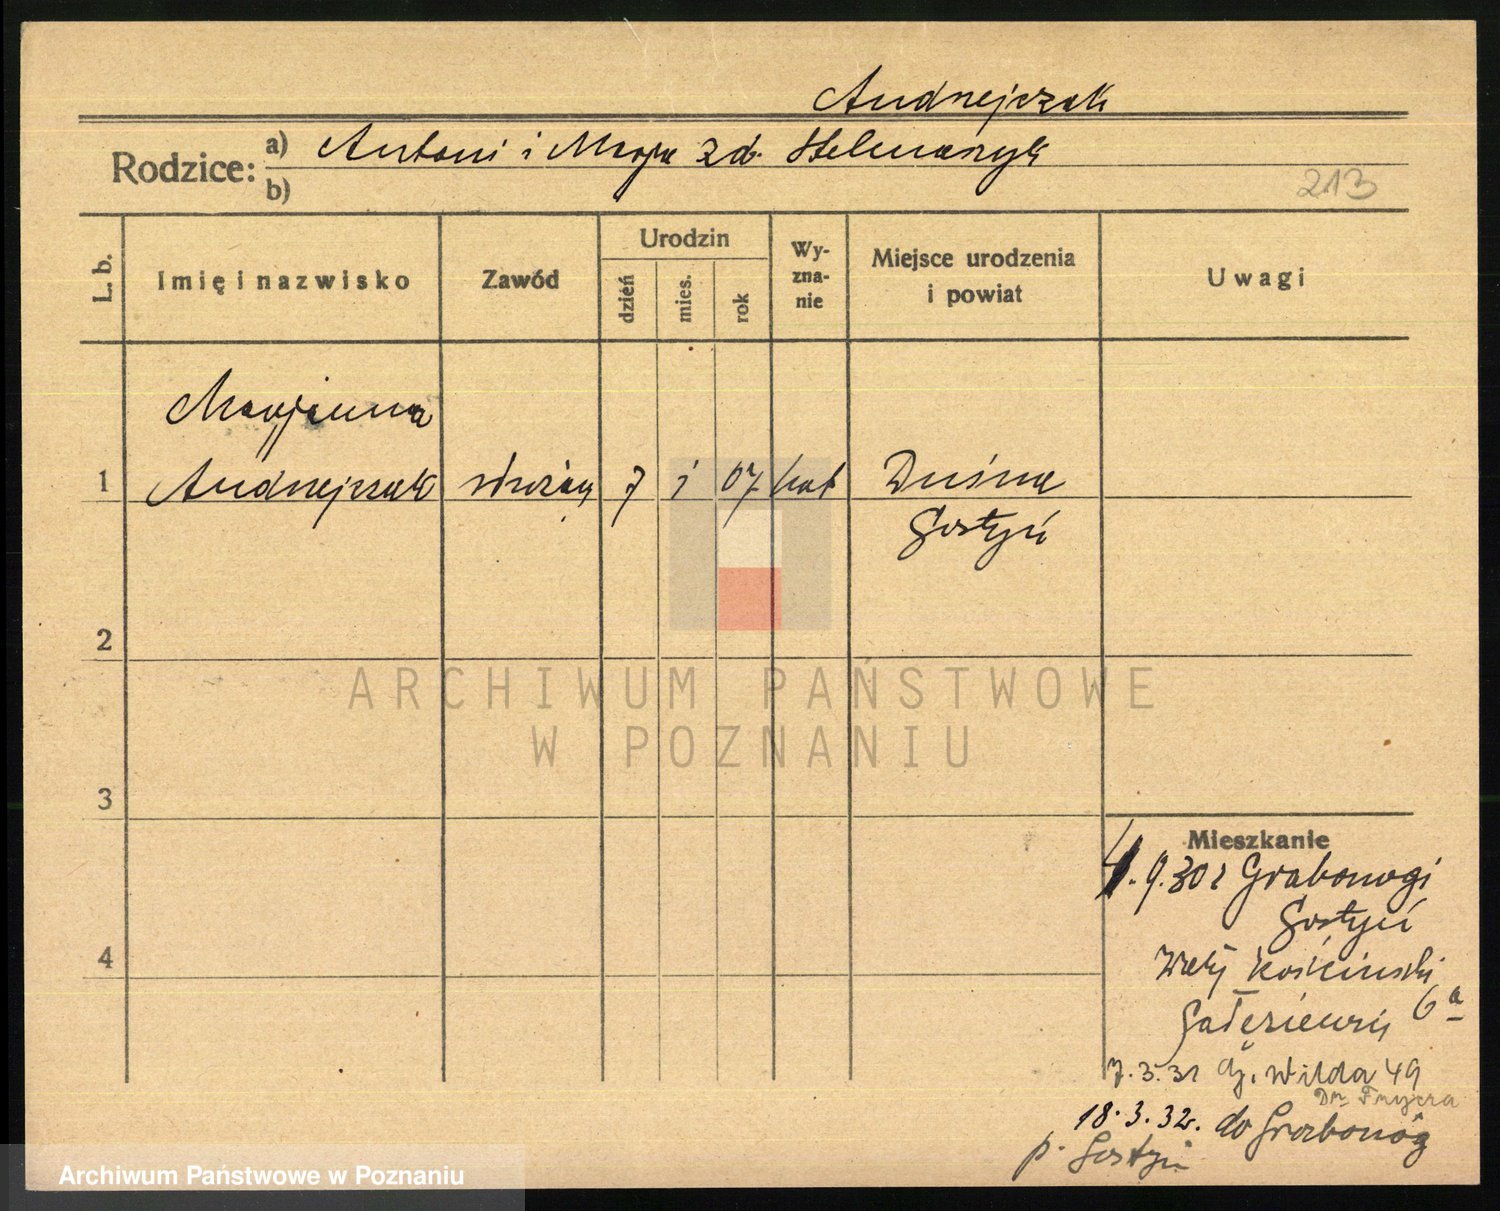 Andrzejczak
Rodzice: a) Antoni i Marja zd.
b)
213
L. b.
Imię i nazwisko
Zawód
Urodzin
dzień
mies.
rok
Wy-
zna-
nie
Miejsce urodzenia
i powiat
Uwagi
Marjanna
1 Andrzejczak służąca 7 1 07 kat Dusina
Gostyń
2
3
4
Mieszkanie
1.9.30 z Grabonogi
Gostyń
Wały Kościuszki
6a
7.3.31 Wilda 49
18.3.32. do Grabonóg
p. Gostyń
ARCHIWUM PAŃSTWOWE
W POZNANIU
Archiwum Państwowe w Poznaniu